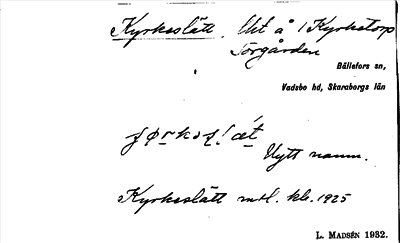 Kyrkeslätt. Uht å 1 Kyrketorp
Torgården
Bällefors sn,
Vadsbo hd, Skaraborgs län
Nytt namn.
Kyrkeslätt mtl. kb. 1925
L. MADSÉN 1932.